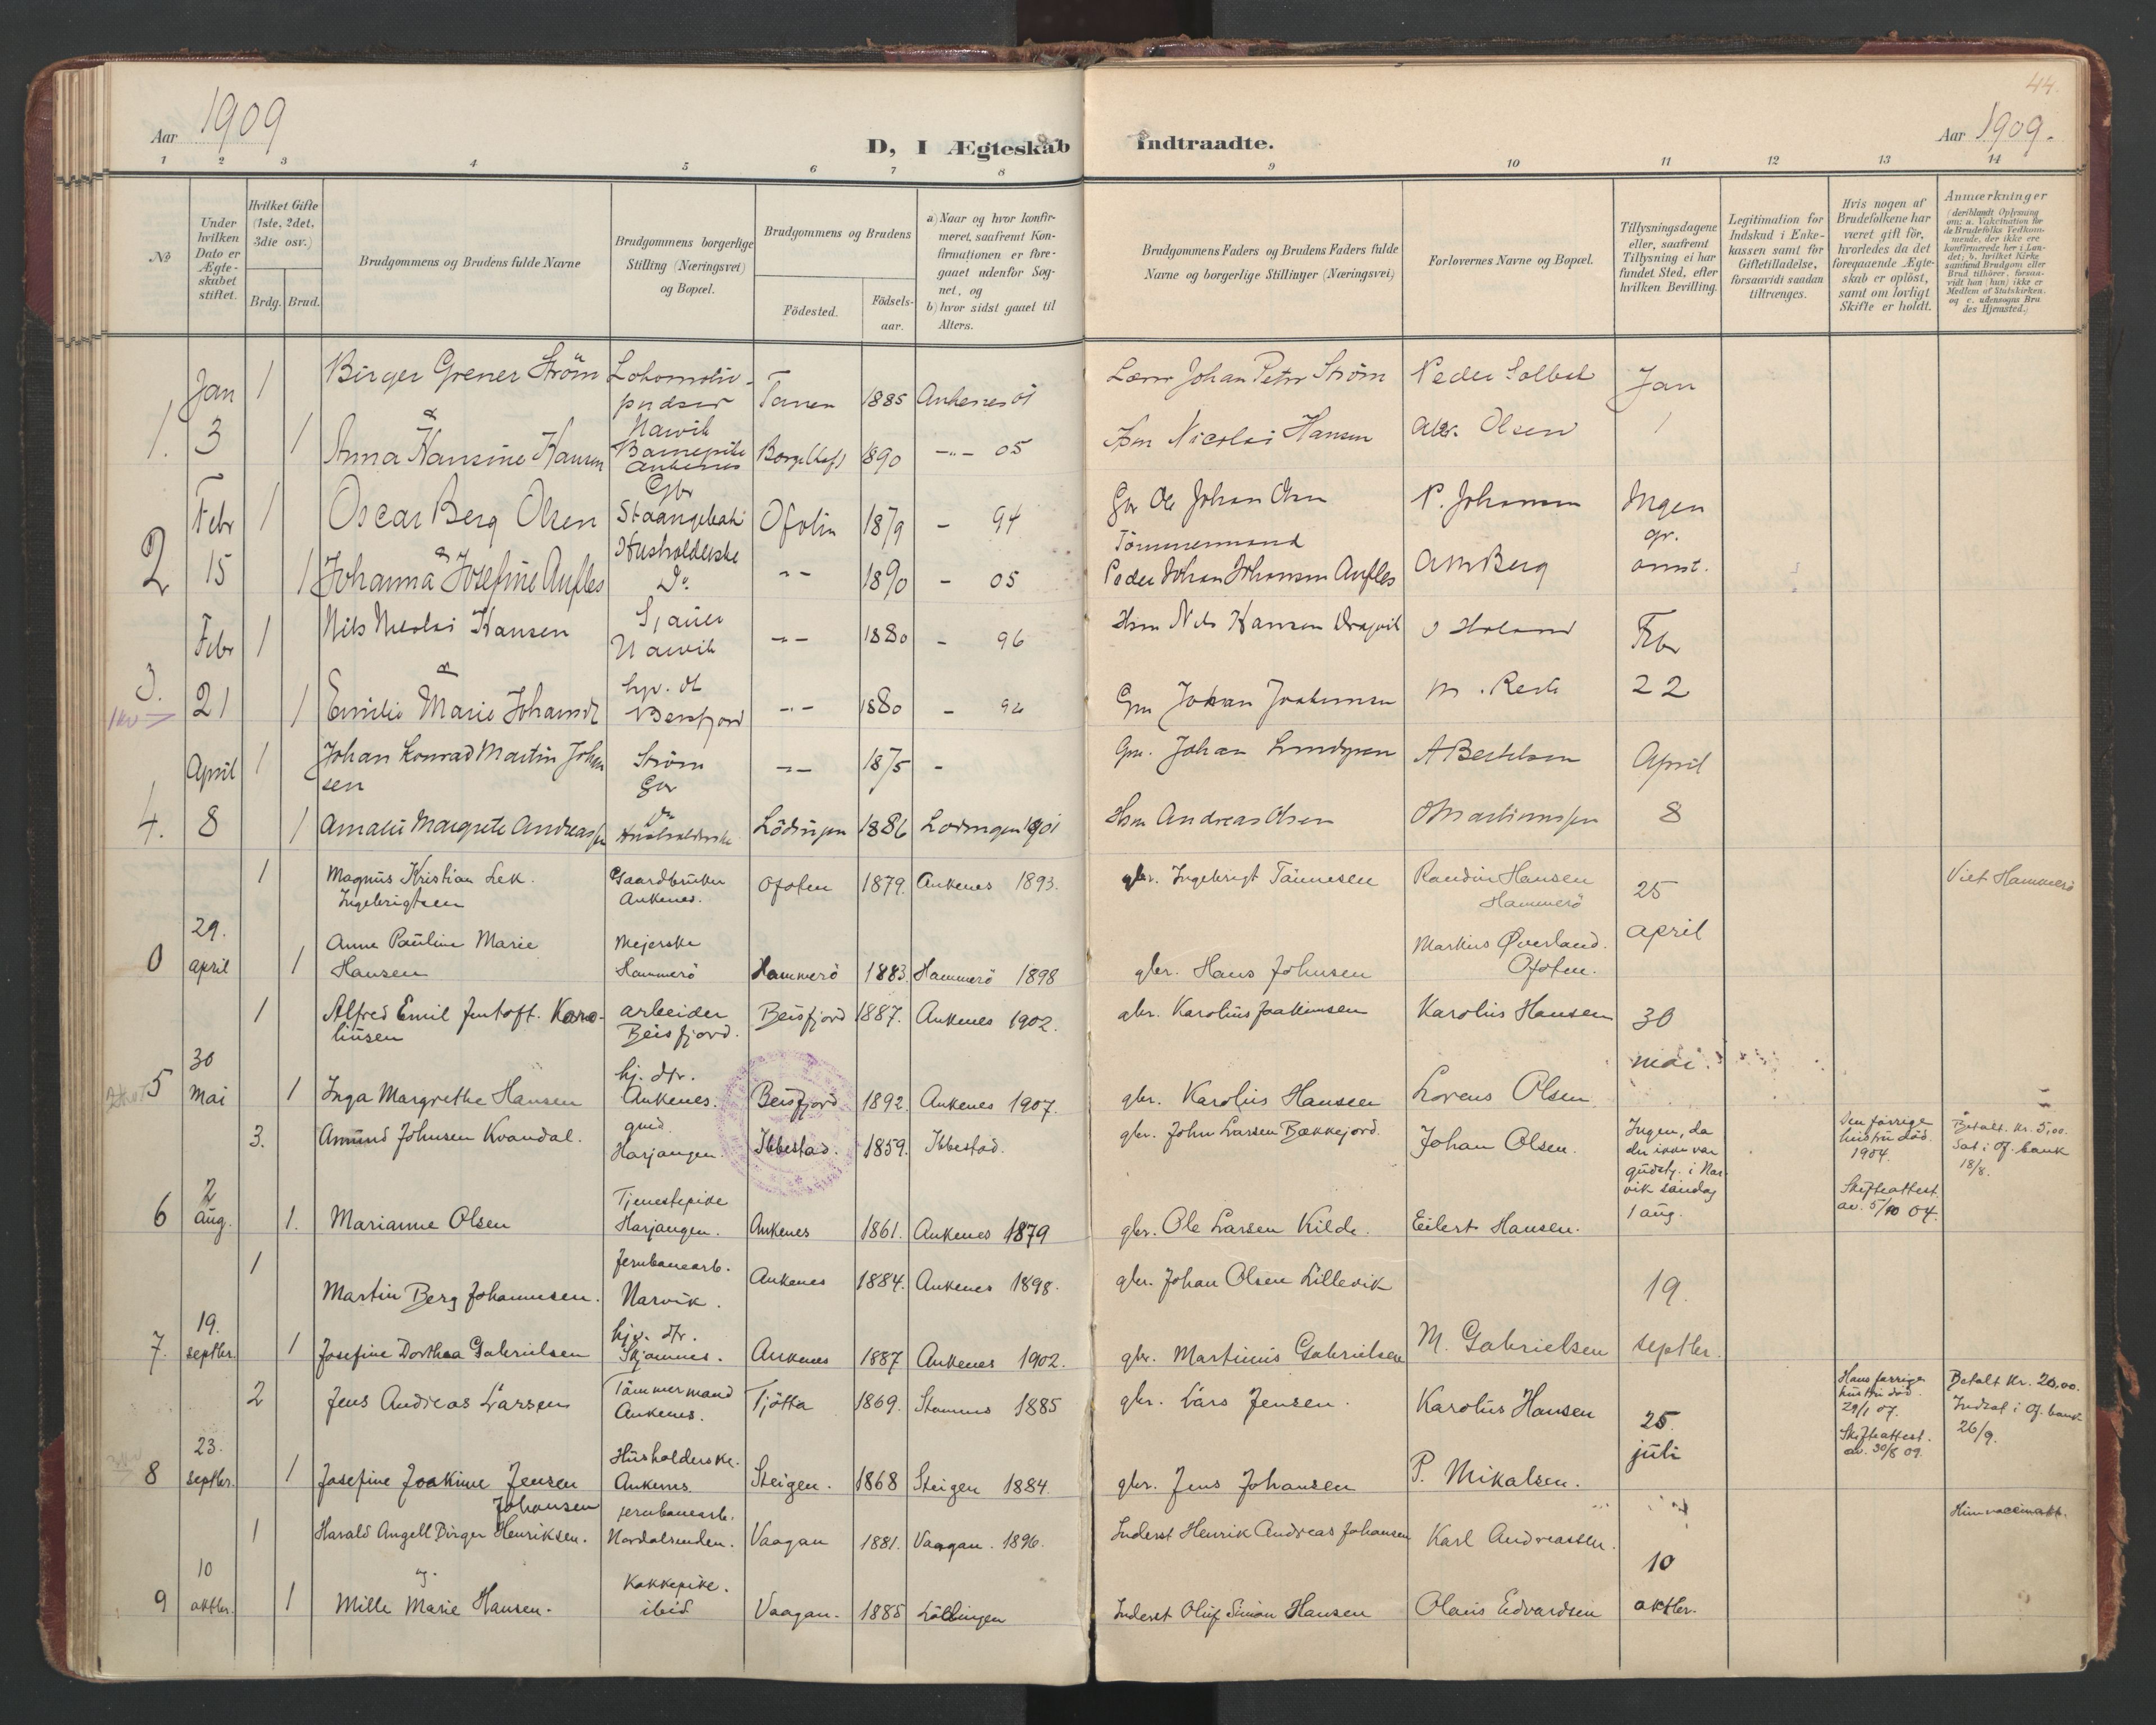 44.
Aar 1909
D, I Ægteskab Indtraadte.
Aar 1909.
1 2 3 4 5 6 7 8 9 10 11 12 13 14
No
Under hvilken Dato er Ægte-skabet stiftet.
Hvilket Gifte (1ste, 2det, 3die osv.)
Brdg. Brud.
Brudgommens og Brudens fulde Navne
Brudgommens borgerlige Stilling (Næringsvei) og Bopæl.
Brudgommens og Brudens
Fødested.
Fødsels-aar.
a) Naar og hvor konfir-meret, saafremt Kon-firmationen er fore-gaaet udenfor Sog-net, og
b) hvor sidst gaaet til Alters.
Brudgommens Faders og Brudens Faders fulde Navne og borgerlige Stillinger (Næringsvei)
Forlovernes Navne og Bopæl.
Tillysningsdagene eller, saafremt Tillysning ei har fundet Sted, efter hvilken Bevilling.
Legitimation for Indskud i Enke-kassen samt for Giftetilladelse, forsaavidt saadan tiltrænges.
Hvis nogen af Brudefolkene har været gift før, hvorledes da det foregaaende Ægte-skab er opløst, samt om lovligt Skifte er holdt.
Anmærkninger
(deriblandt Oplysning om: a. Vakcination for de Brudefolks Vedkom-mende, der ikke ere konfirmerede her i Lan-det; b. hvilket Kirke-samfund Brudgom eller Brud tilhører, forsaa-vidt han (hun) ikke er Medlem af Statskirken, og c. udensogns Bru-des Hjemsted.)
1. Jan 3
1 Birger Grener Strøm Lokomotiv-pudser Narvik Tanen 1885 Ankenes 01 Johan Peter Strøm Peder Solbak Jan
&
1 Anna Hansine Hansen Barnepike Ankenes 1890 -"- 05 Hsm Nicolai Hansen Olsen
2 Febr 15
1 Oscar Berg Olsen Gbr Ofoten 1879 - 94 Gbr Ole Johan Olsen P. Johansen Ingen gr. anmt.
&
1 Johanna Josefine Aufles Husholderske Do. -"- 1890 - 05 Tømmermand Peder Johan Johansen Aufles Berg
3. Febr 21
1 Nils Nikolai Hansen Sjauer Narvik -"- 1880 - 96 Hsm Nils Hansen Febr 22
&
1 Emilie Marie Johansd. hjv. dt Beisfjord -"- 1880 - Gm Johan
4. April 8
1 Johan Konrad Martin Johansen Strøm Gbr -"- 1875 - Gm. Johan A Bertelsen April 8
1 Amalie Margrete Andreassen Do Husholderske Lödingen 1886 Lodingen 1901 Hsm Andreas Olsen
0 29. april
1 Magnus Kristian Lek. Ingebrigtsen Gaardbruker Ankenes. Ofoten 1879. Ankenes 1893. gbr. Ingebrigt Tännesen Hansen Hammerö 25 april Viet Hammerö
1 Anne Pauline Marie Hansen Mejerske Hammerö Hammerö 1883. Hammerö 1898 gbr. Hans Johnsen Markus Øverland. Ofoten.
5 30 mai
1 Alfred Emil Jentoft. Karo-liusen arbeider Beisfjord. Beisfjord 1887. Ankenes 1902. gbr. Karolius Joakimsen Karolius Hansen 30 mai.
1 Inga Margrethe Hansen hj. dtr. Ankenes. Beisfjord 1892. Ankenes 1907. gbr. Karolius Hansen Lorens Olsen
6 2 aug.
3. Amund Johnsen Kvandal. Harjangen. Ibbestad. 1859. Ibbestad. gbr. John Larsen Bækkejord. Johan Olsen. Ingen, da der ikke var gudstj. i Nar-vik søndag 1 aug. Den forrige hustru död. 1904. Skifteattest. av. 5/10 04. Betalt. kr. 5,00. Sat i Of. bank 18/8.
1. Marianne Olsen Tjenestepike Harjangen. Ankenes 1861. Ankenes 1879 gbr. Ole Larsen Kilde. Eilert Hansen.
7. 19. septbr.
1 Martin Berg Johannesen. Jernbanearb. Narvik. Ankenes 1884. Ankenes 1898. gbr. Johan Olsen Lillevik 19. septbr.
1 Josefine Dorthea Gabrielsen hjv. dtr. Skjomnes. Ankenes 1887 Ankenes 1902. gbr. Martinus Gabrielsen M. Gabrielsen
8 23. septbr.
2 Jens Andreas Larsen Tömmermand Ankenes. Tjötta 1869. Stamnes 1885 gbr. Lars Jensen. Karolius Hansen 25. juli Hans forrige hustru död. 29/1 07. Skifteattest. av. 30/8 09. Betalt kr. 20,00. Indsat i Of. bank 26/9.
1 Josefine Joakime Jensen Husholderske. Ankenes. Steigen. 1868 Steigen 1884. gbr. Jens Johansen P. Mikalsen.
9 10 oktbr.
1 Harald Angell Birger Henriksen. Johansen jernbanearb. Nordalsenden. Vaagan 1881. Vaagan. 1896. Inderst Henrik Andreas Johansen Karl Andreassen. 10 oktbr.
og.
1 Mille Marie Hansen. Kokkepike. ibid Vaagan. 1885 Lödingen Inderst Oluf Simon Hansen Olaus Edvardsen